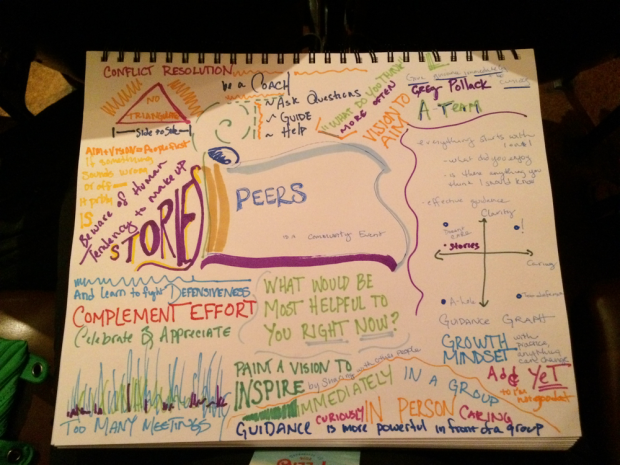 CONFLICT RESOLUTION
NO
Side to Side
If something
sounds wrong
or off
IS
Beware of Human
Tendency to make up
STORIES
be a COACH
~ Ask Questions
~ GUIDE
~ Help
"WHAT DO YOU THINK"
MORE OFTEN
VISION TO
GREG Pollack
A-TEAM
- everything starts with
- what did you enjoy
- is there anything you
think I should know
- effective guidance
Clarity
!
Stories
Caring
GUIDANCE GRAPH
PEERS
Community Event
And learn to fight DEFENSIVENESS
COMPLEMENT EFFORT
Celebrate & APPRECIATE
TOO MANY MEETINGS
WHAT WOULD BE
MOST HELPFUL TO
YOU RIGHT NOW?
GROWTH
MINDSET
with
practice,
anything
can change
Add YET
to I'm
not good at
PAINT A VISION TO
INSPIRE
by Sharing
other people
IMMEDIATELY
IN A GROUP
CURIOUSLY
IN PERSON
CARING
GUIDANCE is more powerful in front of a group